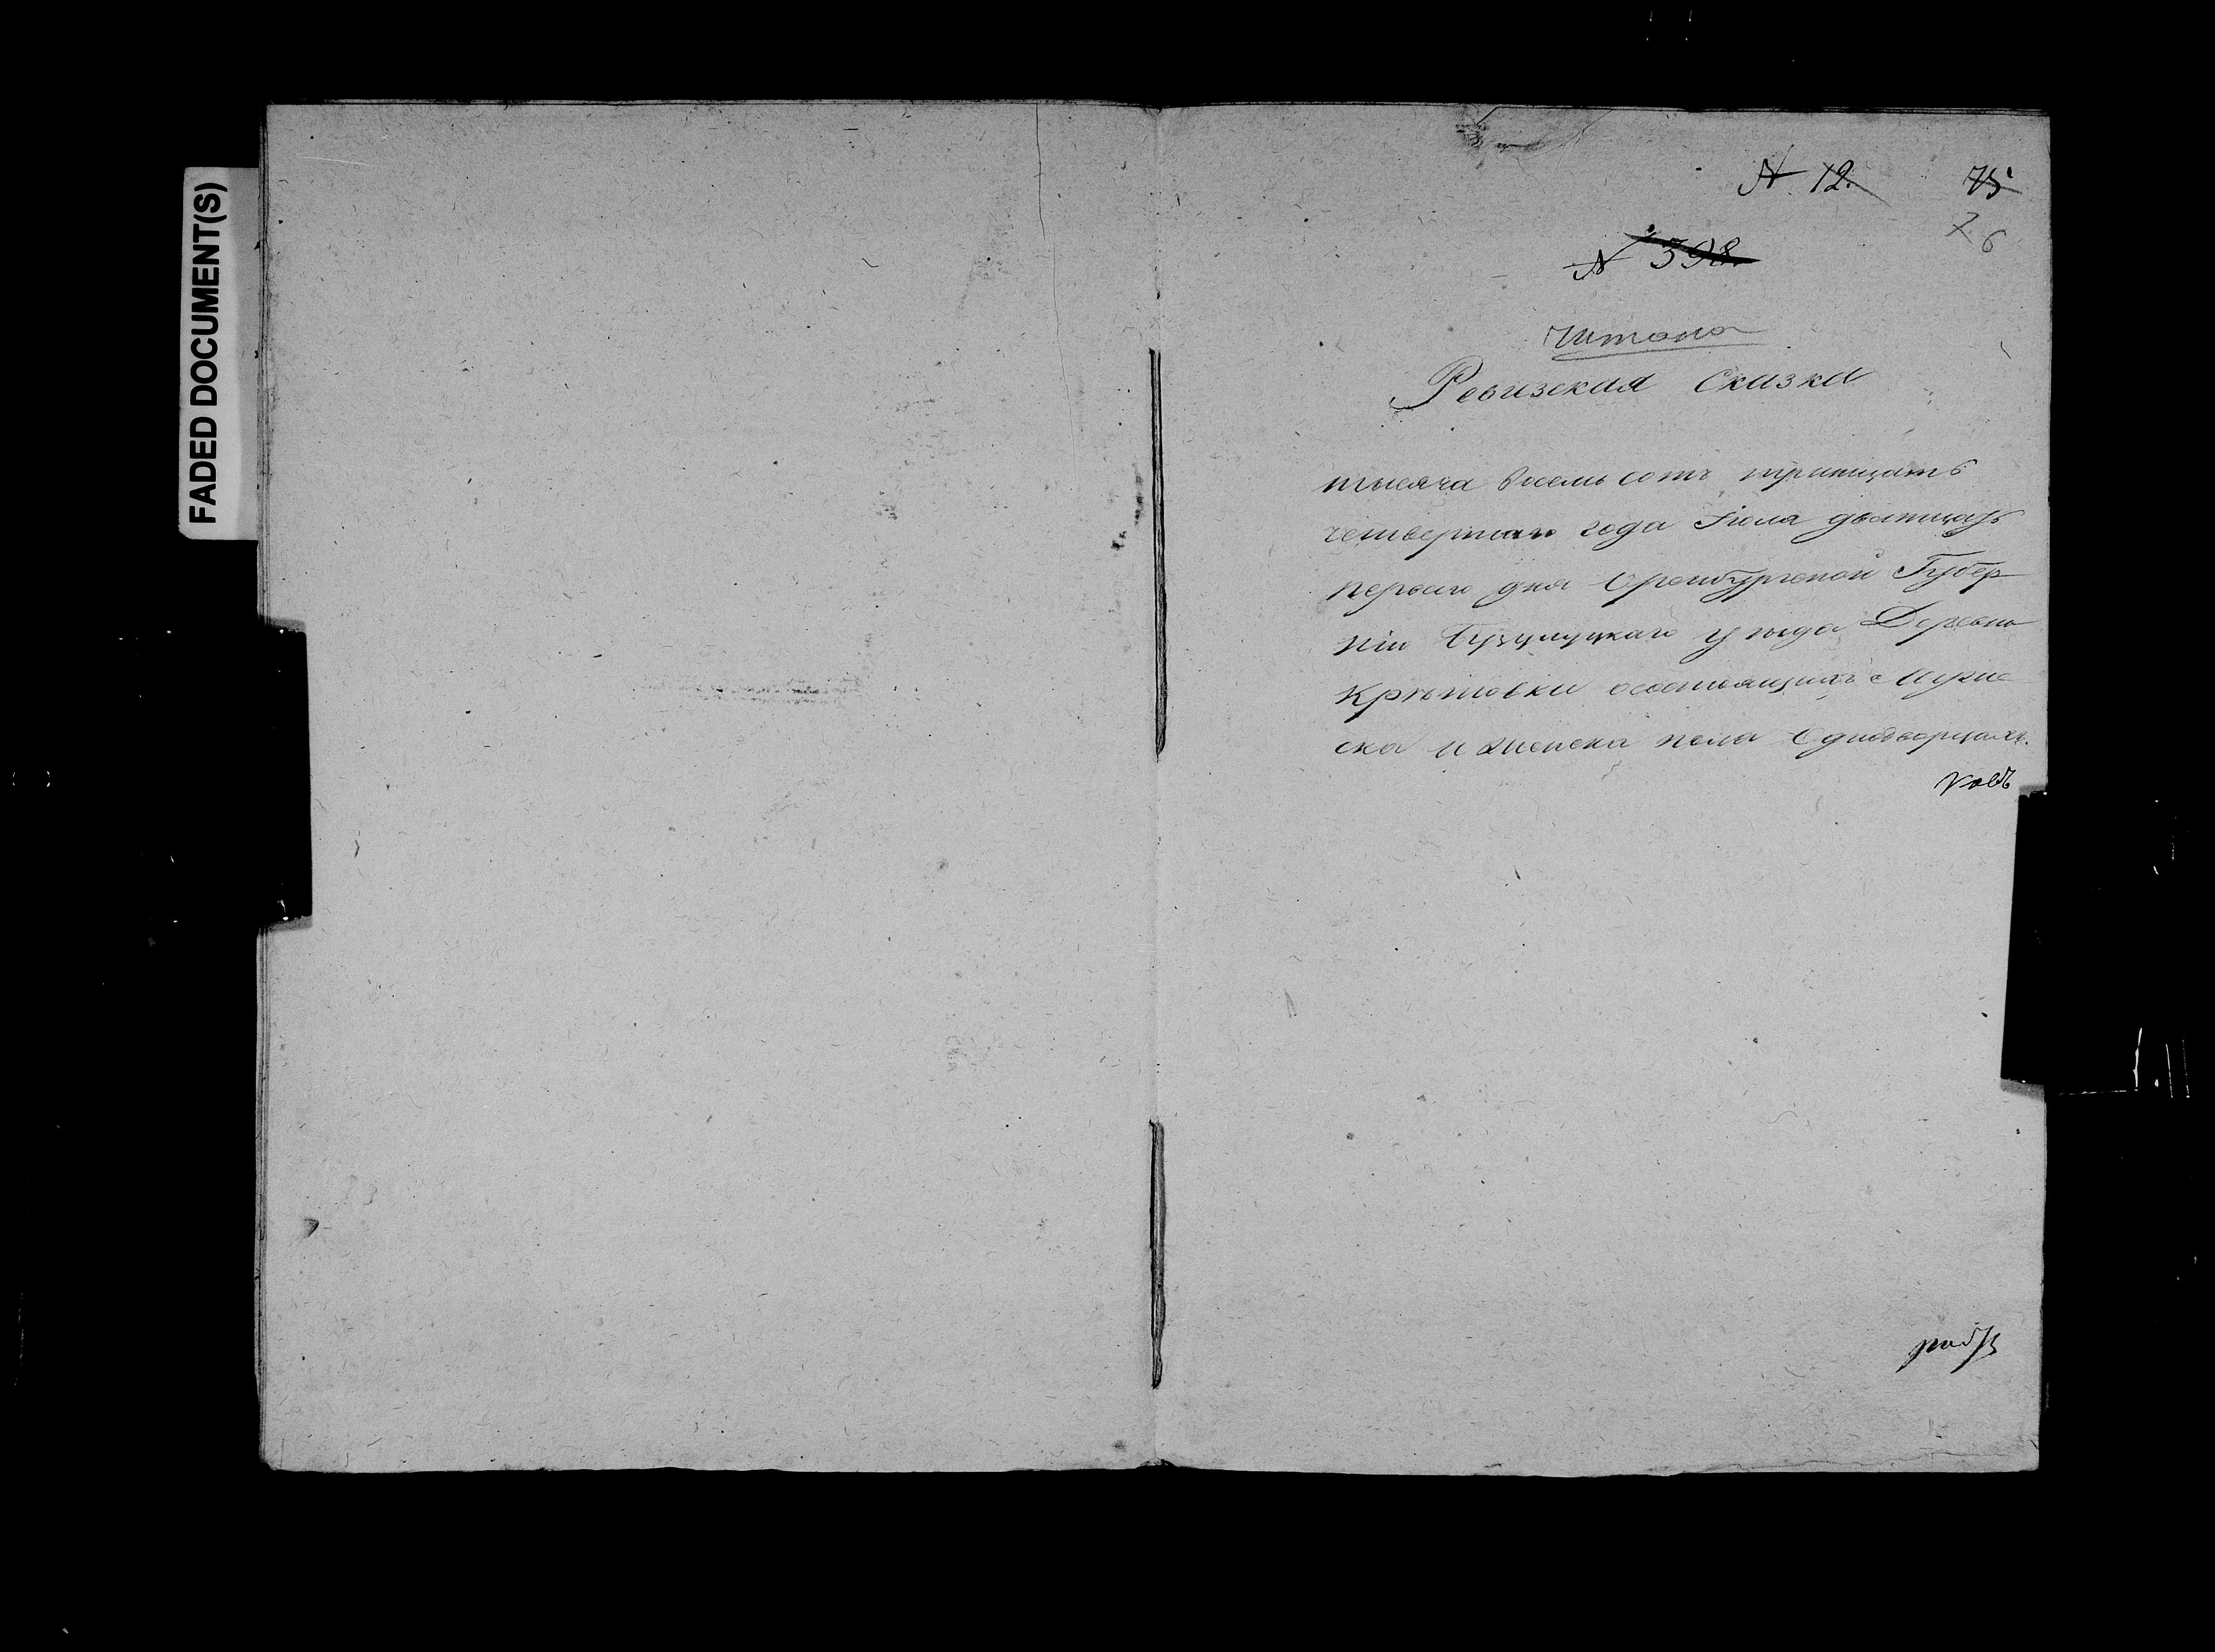 FADED DOCUMENT(S)
N. 12. 75
76
N 398.
Читано
Ревизская Сказка
тысяча восемь сотъ тритцать
четвертаго года Iюля дватцать
перваго дня Оренбургской Губер
нiи Бузулуцкаго уѣзда Деревни
Крѣтовки осостоящихъ Мужес
ска и женска пола Однодворцахъ.